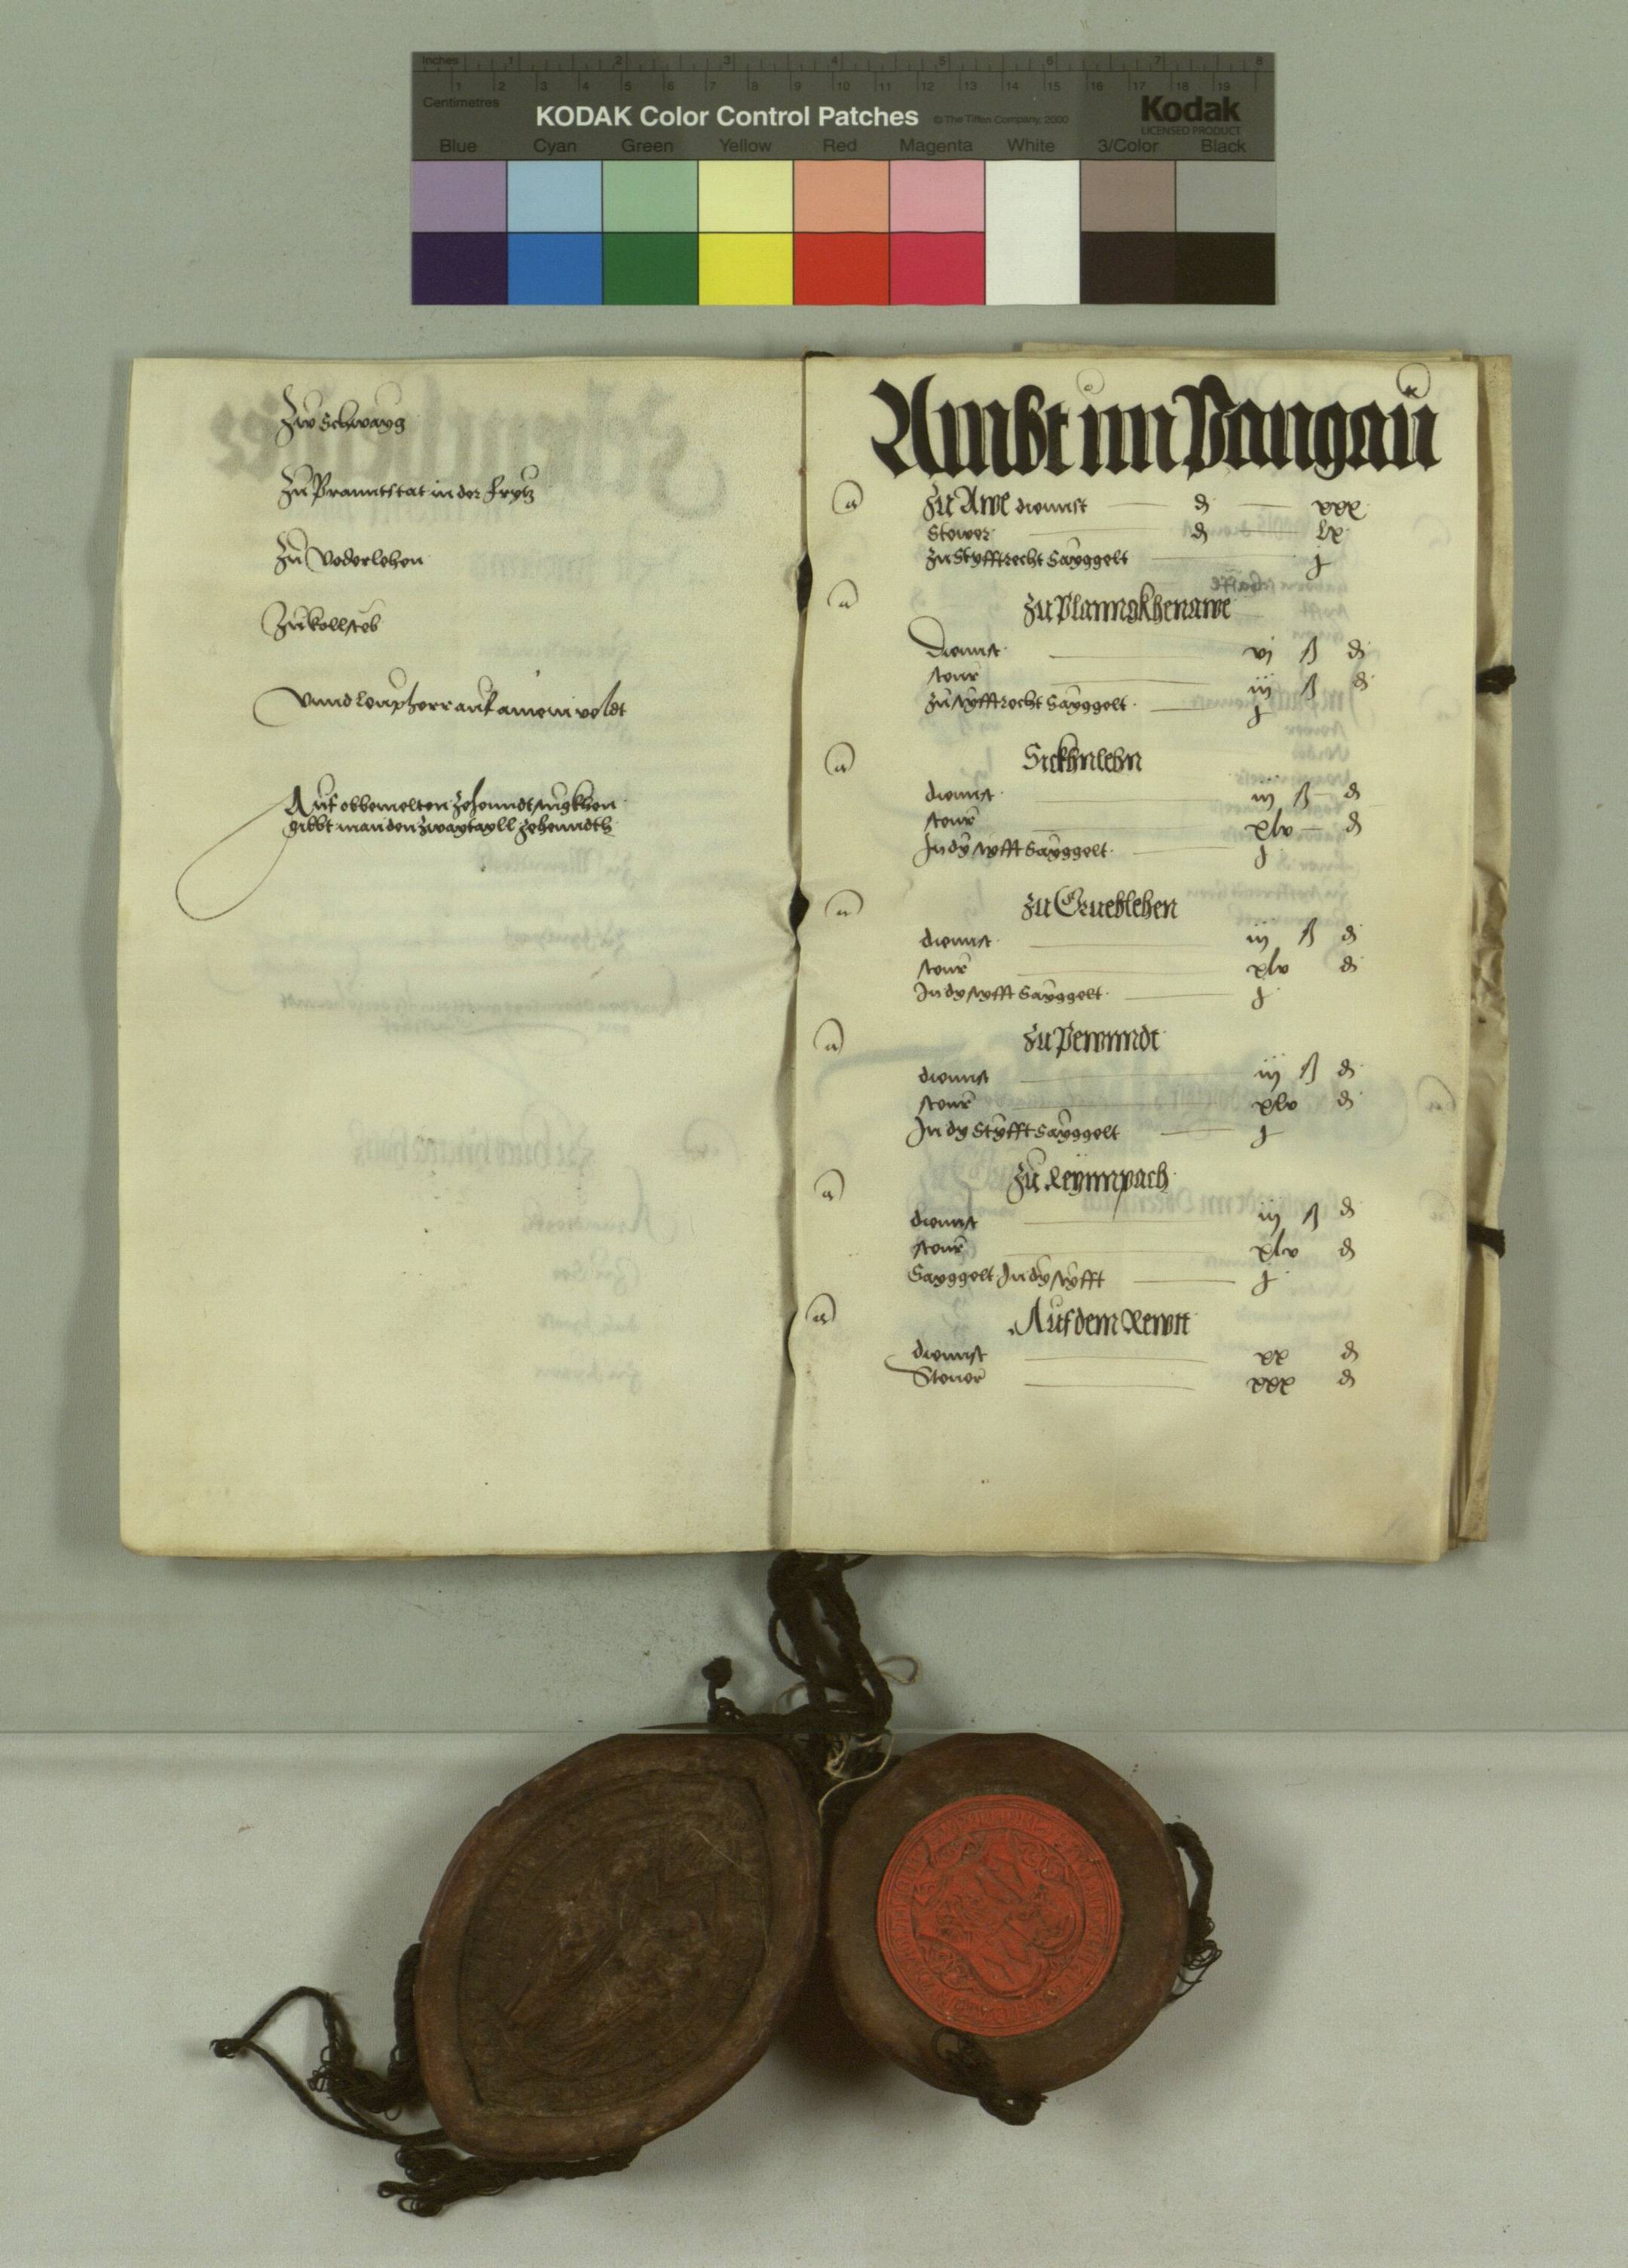 Inches 1 2 3 4 5 6 7 8
Centimetres 1 2 3 4 5 6 7 8 9 10 11 12 13 14 15 16 17 18 19
KODAK Color Control Patches © The Tiffen Company, 2000 Kodak
LICENSED PRODUCT
Blue Cyan Green Yellow Red Magenta White 3/Color Black
Zw Schwayg
Zu Pranntstat in der Frytz
Zu Voderlehen
Zu
Vnnd
Auf obbemelten zehenndt
gibbt man den zwaytayll zehenndts
Ambt im Pangau
Zu Awe diennst d xxx
Stewer d lx
Zu Styfftrecht Sayggelt j
Zu Planngkhenawe
Diennst vj ß d
steur iij ß d
Zu styfftrecht Sayggelt j
Sickhnlehn
diennst iij ß d
steur xlv d
In dy styfft Sayggelt j
Zu Grueblehen
diennst iij ß d
steur xlv d
In dy styfft Sayggelt j
Zu Pewnndt
diennst iij ß d
steur xlv d
In dy Styfft Sayggelt j
Zu Reynnpach
diennst iij ß d
steur xlv d
Sayggelt In dy styfft j
Auf dem Rewtt
diennst xx d
Steuer xxx d